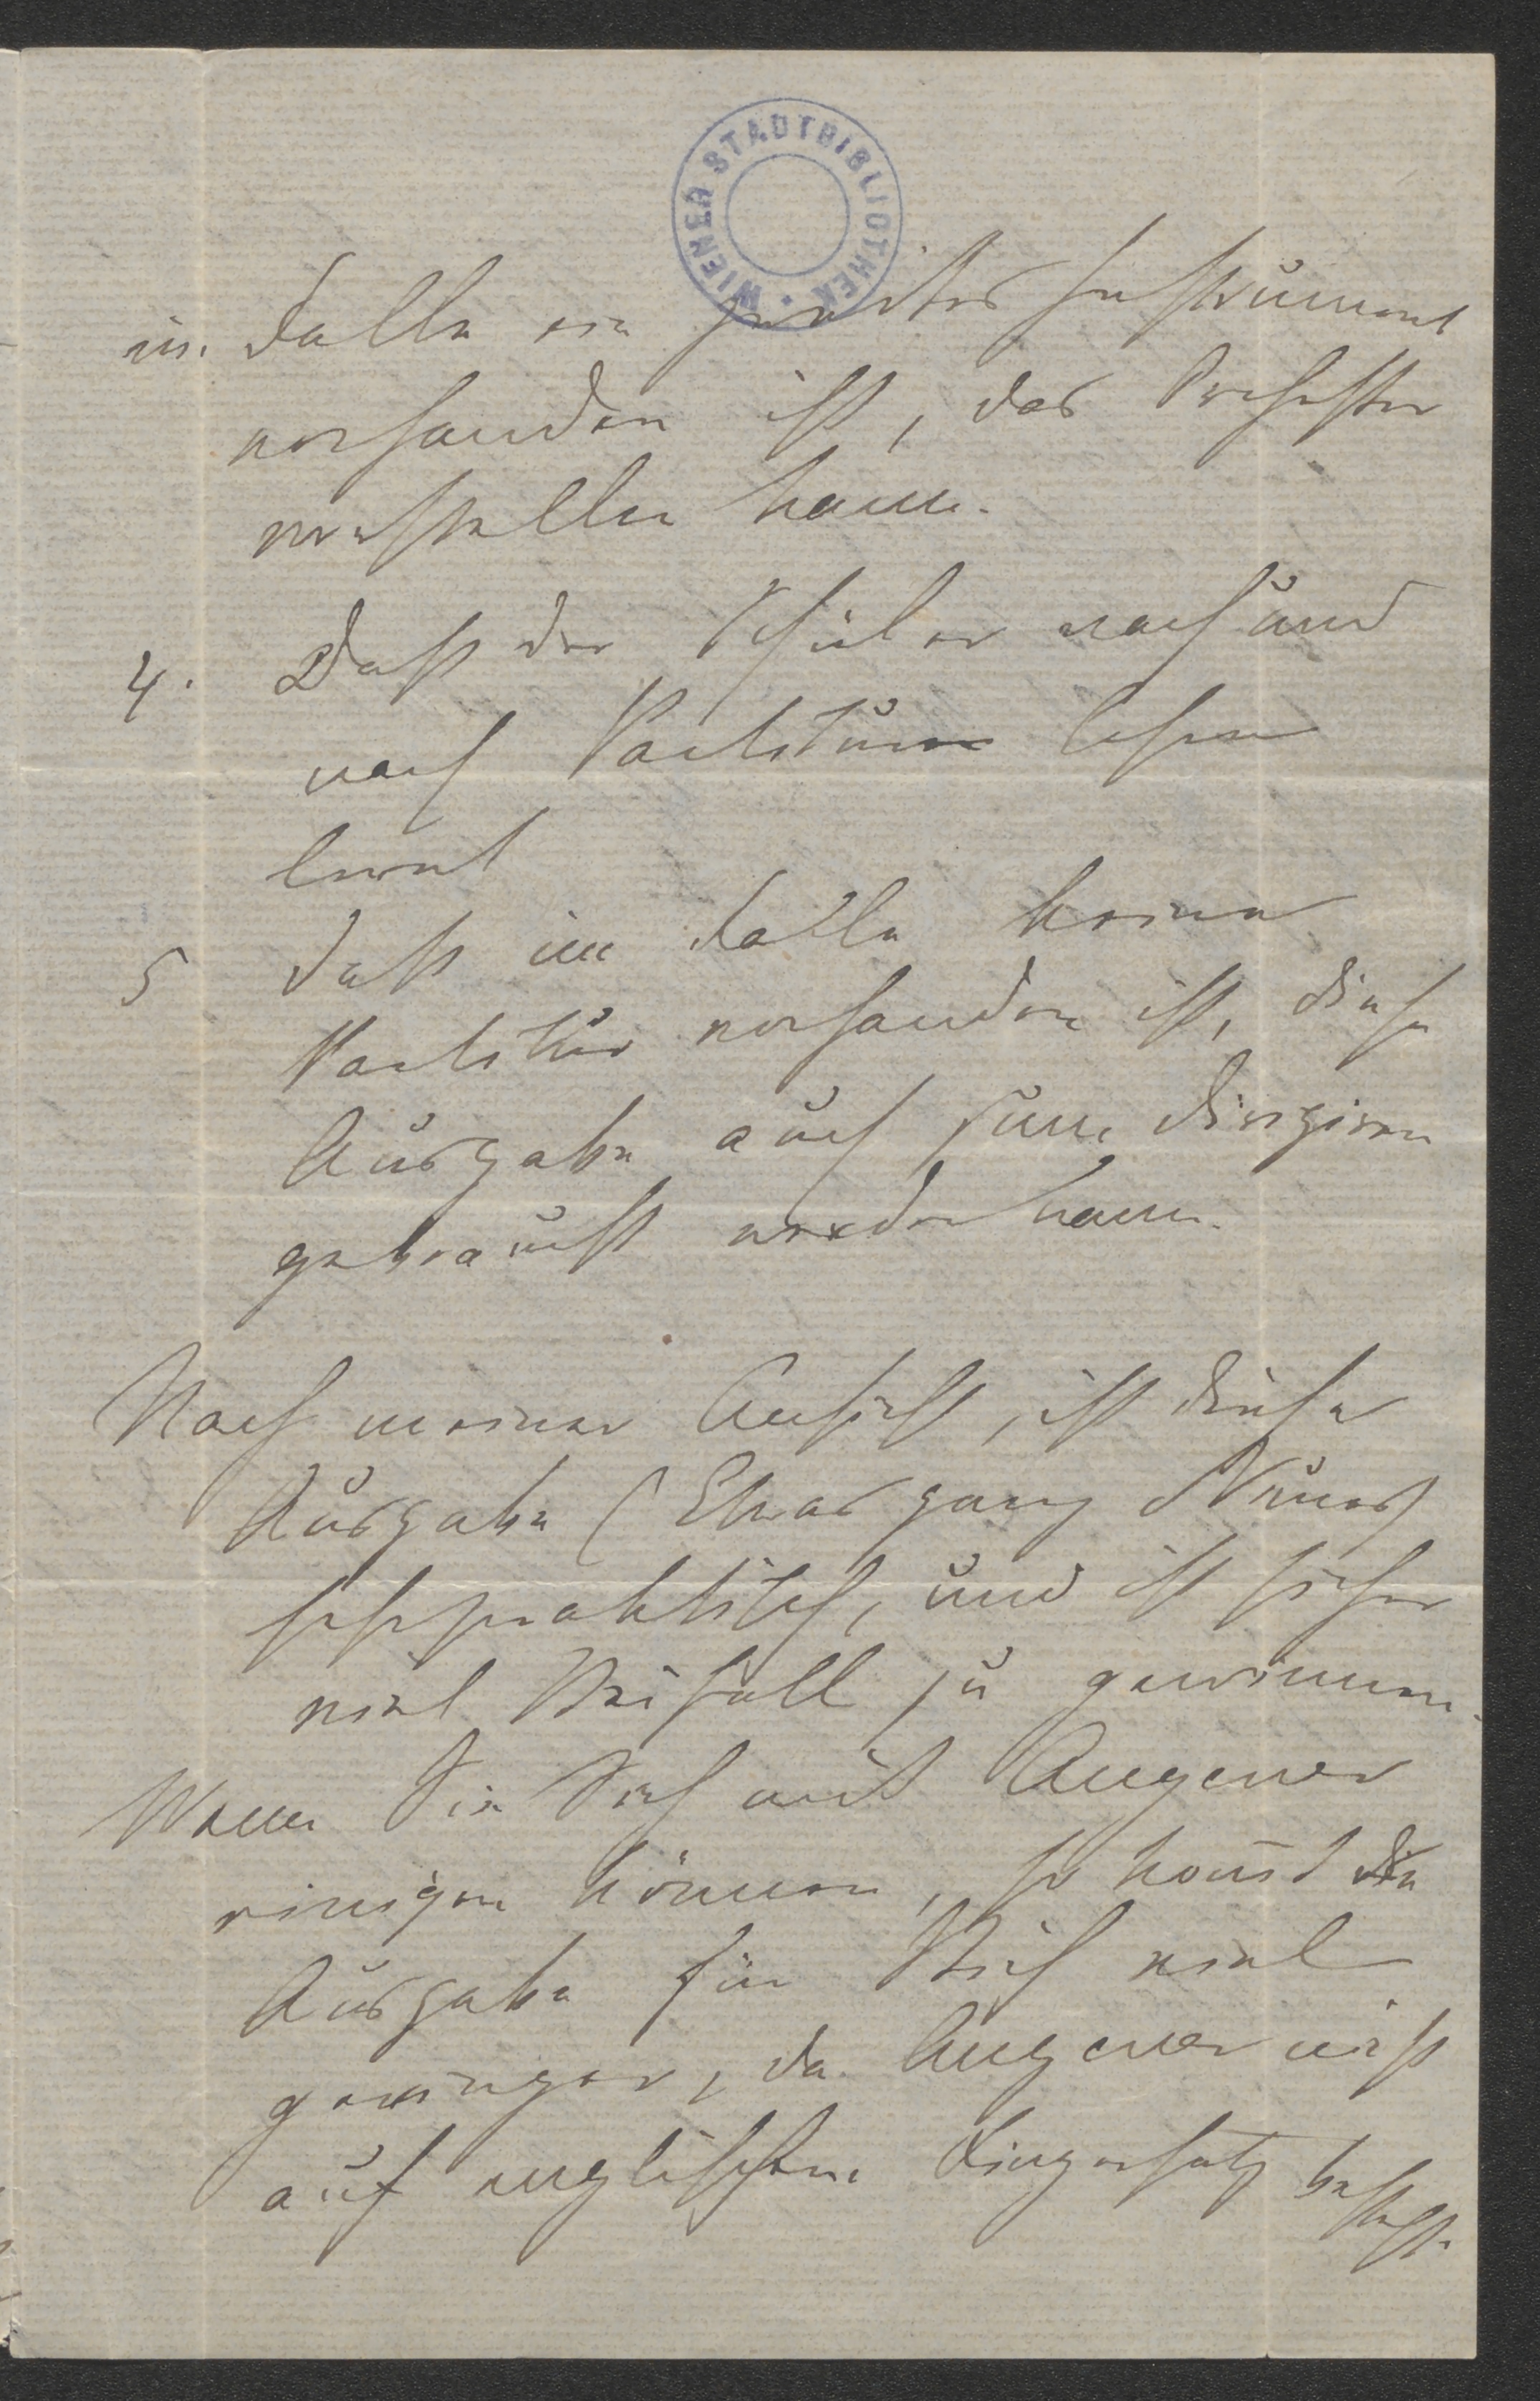 WIENER STADTBIBLIOTHEK
im Falle ein zweites Instrument
vorhanden ist, das Orchester
vorstellen kann.
4. Daß der Schüler nach und
nach Partituren lesen
lernt
5 daß im Falle keine
Partitur vorhanden ist, diese
Ausgabe auch zum dirigiren
gebraucht werden kann.
Nach meiner Ansicht, ist diese
Ausgabe (Etwas ganz Neues)
sehr praktisch, und ist sicher
viel Beifall zu gewinnen.
Wenn Sie Sich mit Augener
einigen können, so kommt die
Ausgabe für Sich viel
geringer, da Augener nicht
auf englischem Fingersatz besteht.